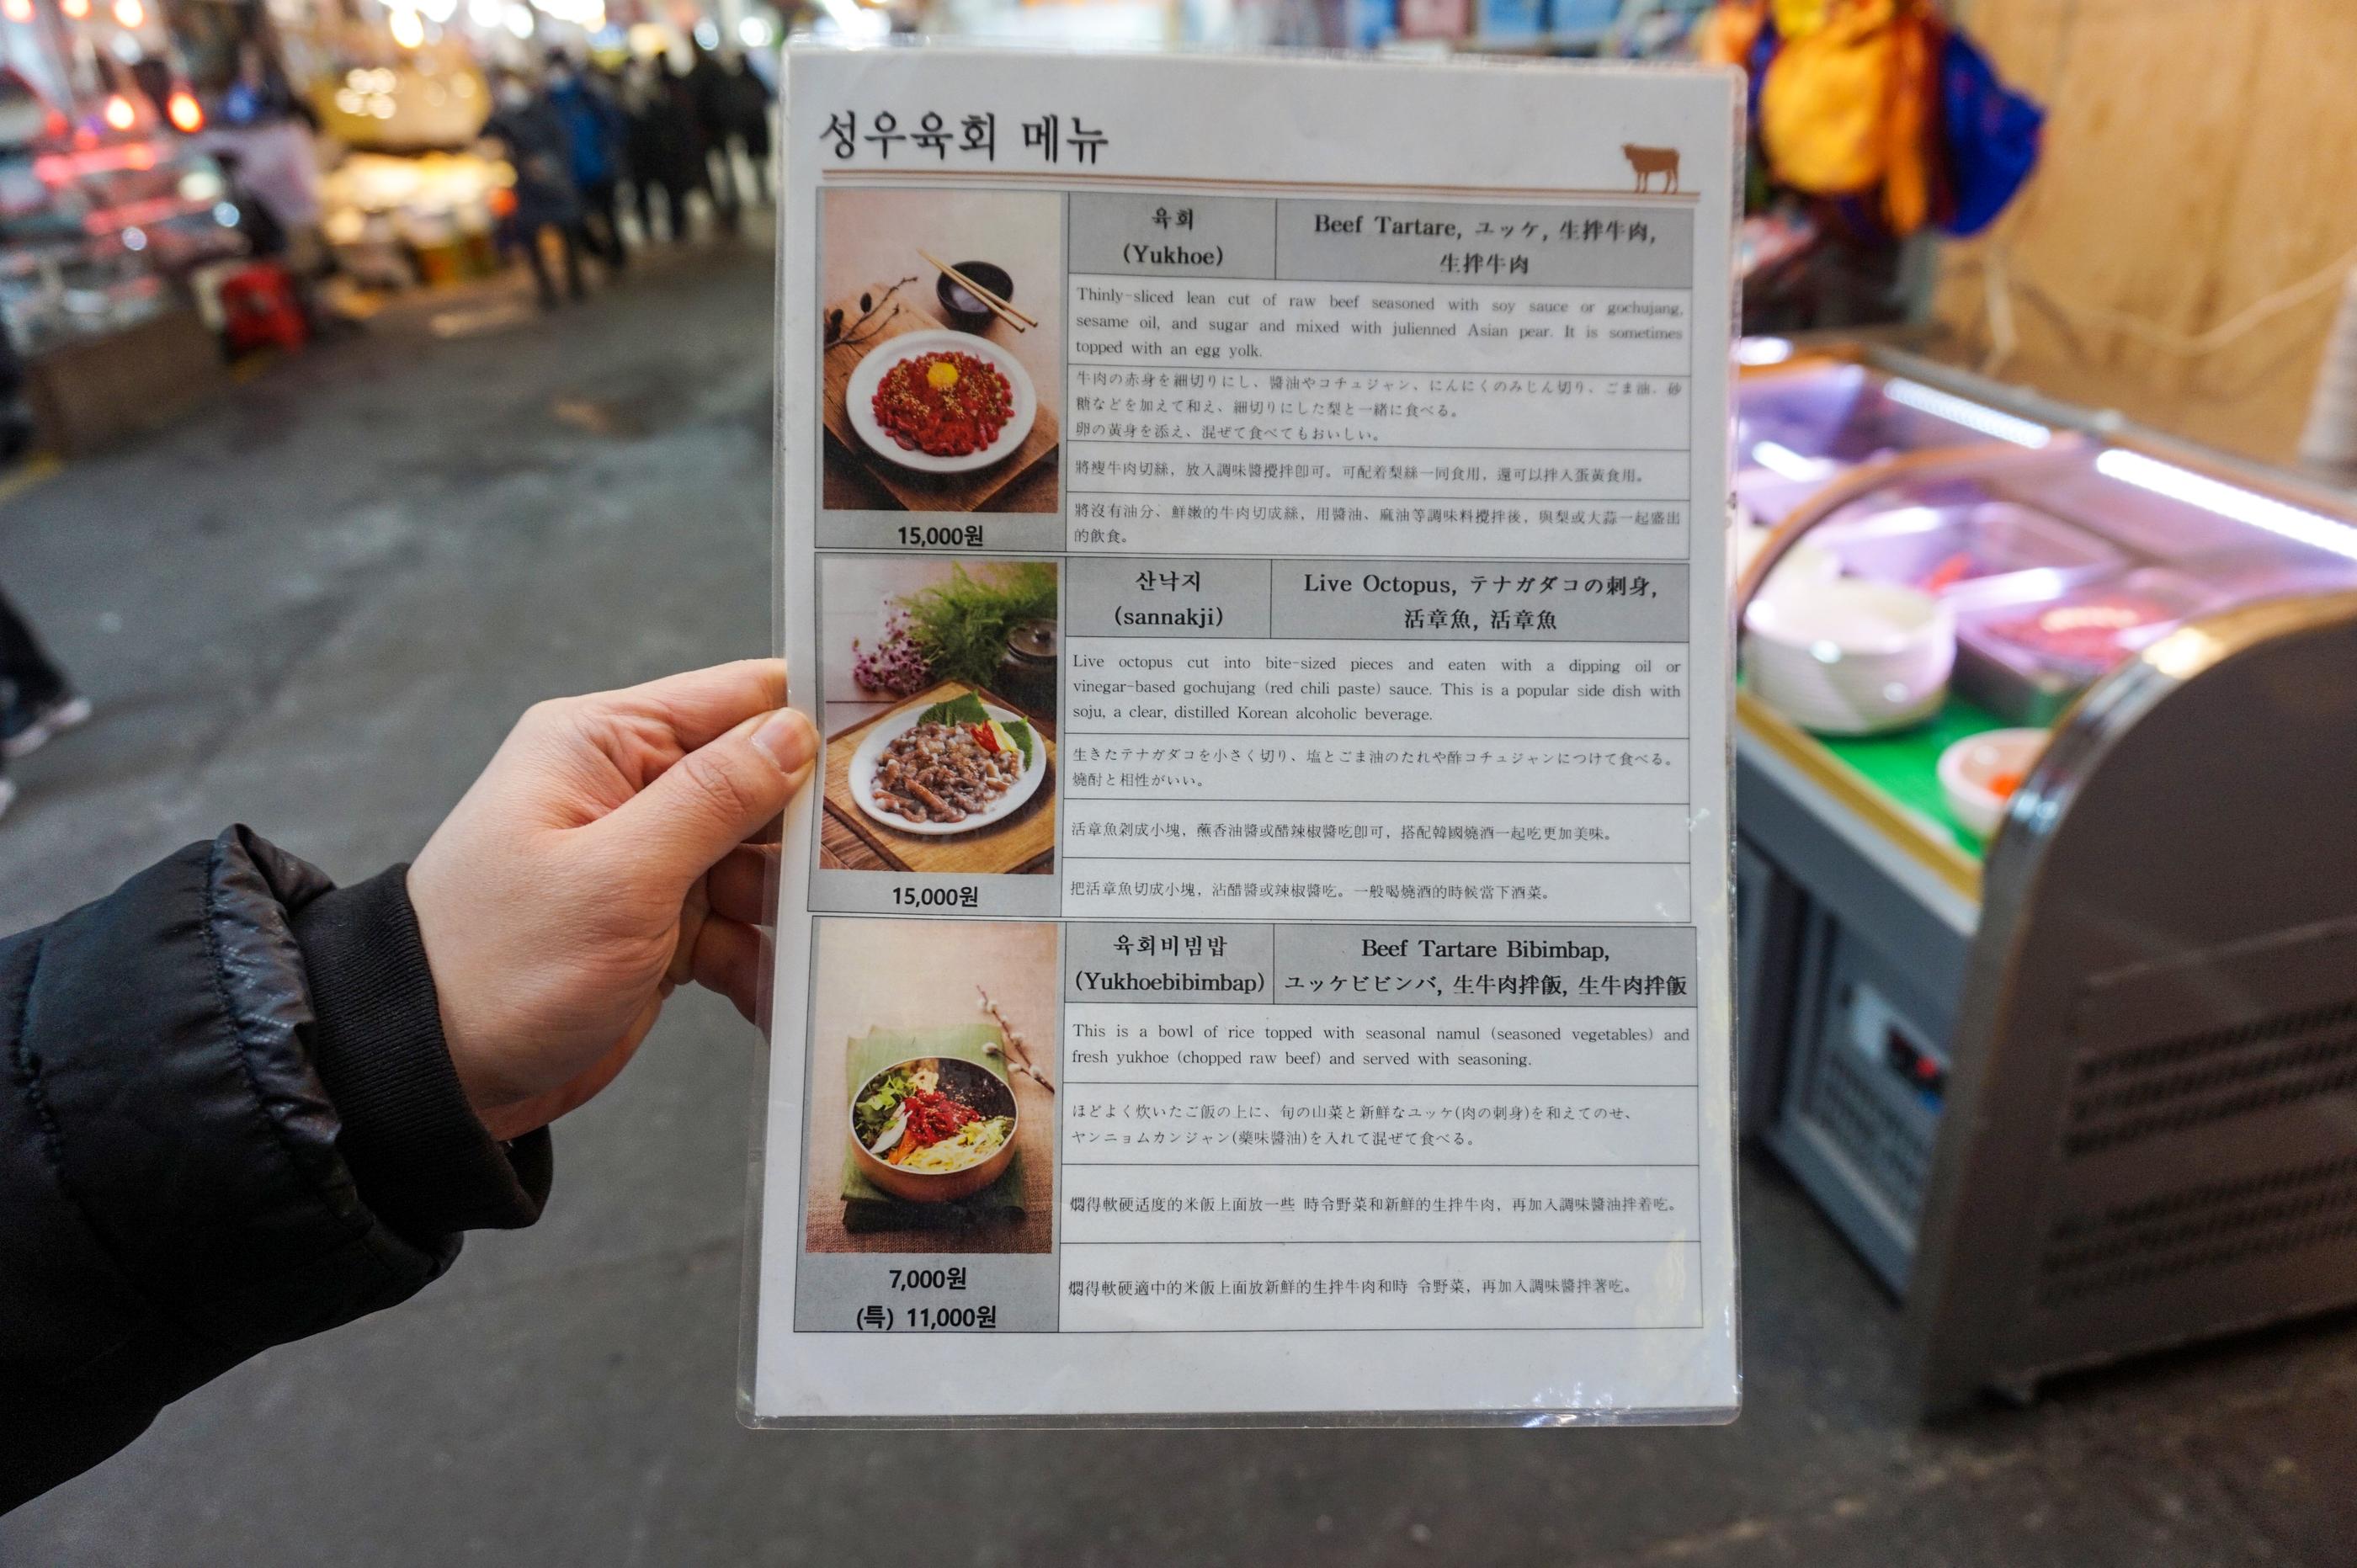 성우육회 메뉴
육회
(Yukhoe)
Beef Tartare, ユッケ, 生拌牛肉,
生拌牛肉
Thinly-sliced lean cut of raw beef seasoned with soy sauce or gochujang,
sesame oil, and sugar and mixed with julienned Asian pear. It is sometimes
topped with an egg yolk.
牛肉の赤身を細切りにし、醬油やコチュジャン、にんにくのみじん切り、ごま油、砂
糖などを加えて和え、細切りにした梨と一緒に食べる。
卵の黃身を添え、混ぜて食べてもおいしい。
將瘦牛肉切絲，放入調味醬攪拌卽可。可配着梨絲一同食用，還可以拌入蛋黃食用。
將沒有油分、鮮嫩的牛肉切成絲，用醬油、麻油等調味料攪拌後，與梨或大蒜一起盛出
的飮食。
15,000원
산낙지
(sannakji)
Live Octopus, テナガダコの刺身,
活章魚, 活章魚
Live octopus cut into bite-sized pieces and eaten with a dipping oil or
vinegar-based gochujang (red chili paste) sauce. This is a popular side dish with
soju, a clear, distilled Korean alcoholic beverage.
生きたテナガダコを小さく切り、塩とごま油のたれや酢コチュジャンにつけて食べる。
燒酎と相性がいい。
活章魚剁成小塊，蘸香油醬或醋辣椒醬吃卽可，搭配韓國燒酒一起吃更加美味。
把活章魚切成小塊，沾醋醬或辣椒醬吃。一般喝燒酒的時候當下酒菜。
15,000원
육회비빔밥
(Yukhoebibimbap)
Beef Tartare Bibimbap,
ユッケビビンバ, 生牛肉拌飯, 生牛肉拌飯
This is a bowl of rice topped with seasonal namul (seasoned vegetables) and
fresh yukhoe (chopped raw beef) and served with seasoning.
ほどよく炊いたご飯の上に、旬の山菜と新鮮なユッケ(肉の刺身)を和えてのせ、
ヤンニョムカンジャン(藥味醬油)を入れて混ぜて食べる。
燜得軟硬适度的米飯上面放一些 時令野菜和新鮮的生拌牛肉，再加入調味醬油拌着吃。
燜得軟硬適中的米飯上面放新鮮的生拌牛肉和時 令野菜，再加入調味醬拌著吃。
7,000원
(특) 11,000원